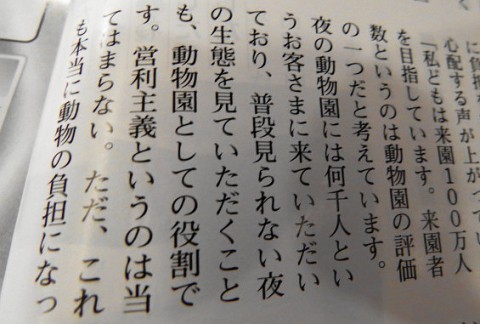 に負担を
心配する声が上がってい
「私どもは来園100万人
を目指しています。来園者
数というのは動物園の評価
の一つだと考えています。
夜の動物園には何千人とい
うお客さまに来ていただい
ており、普段見られない夜
の生態を見ていただくこと
も、動物園としての役割で
す。営利主義というのは当
てはまらない。ただ、これ
も本当に動物の負担になっ